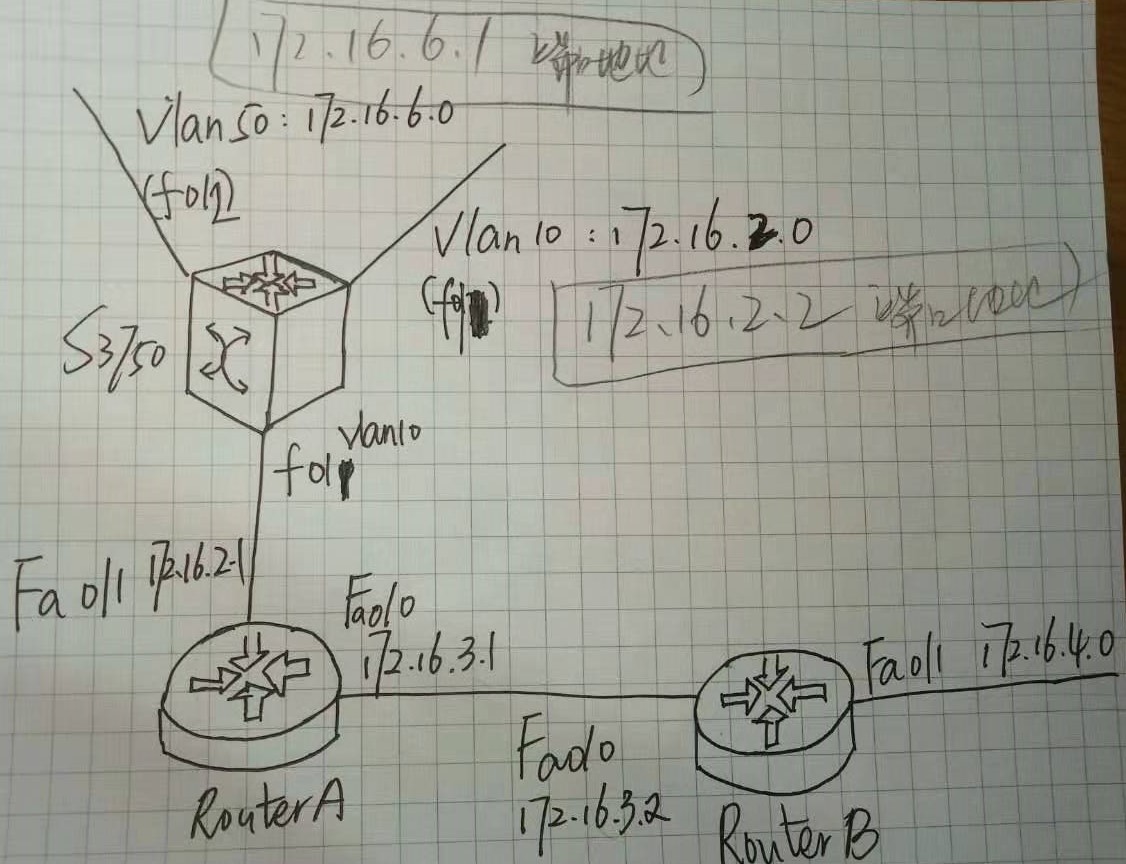 172.16.6.1 端口地址
Vlan50: 172.16.6.0
(f0/2)
Vlan10: 172.16.2.0
172.16.2.2 端口地址
S3750
vlan10
f0/1
Fa0/1 172.16.2.1
Fa0/0
172.16.3.1
Fa0/1 172.16.4.0
Fa0/0
172.16.3.2
RouterA
RouterB